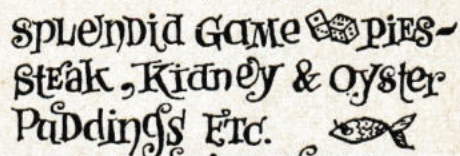 Splendid Game Pies-
Steak, Kidney & Oyster
Puddings Etc.